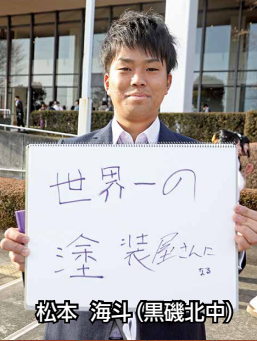 世界一の
塗装屋さんに
なる
松本 海斗(黒磯北中)